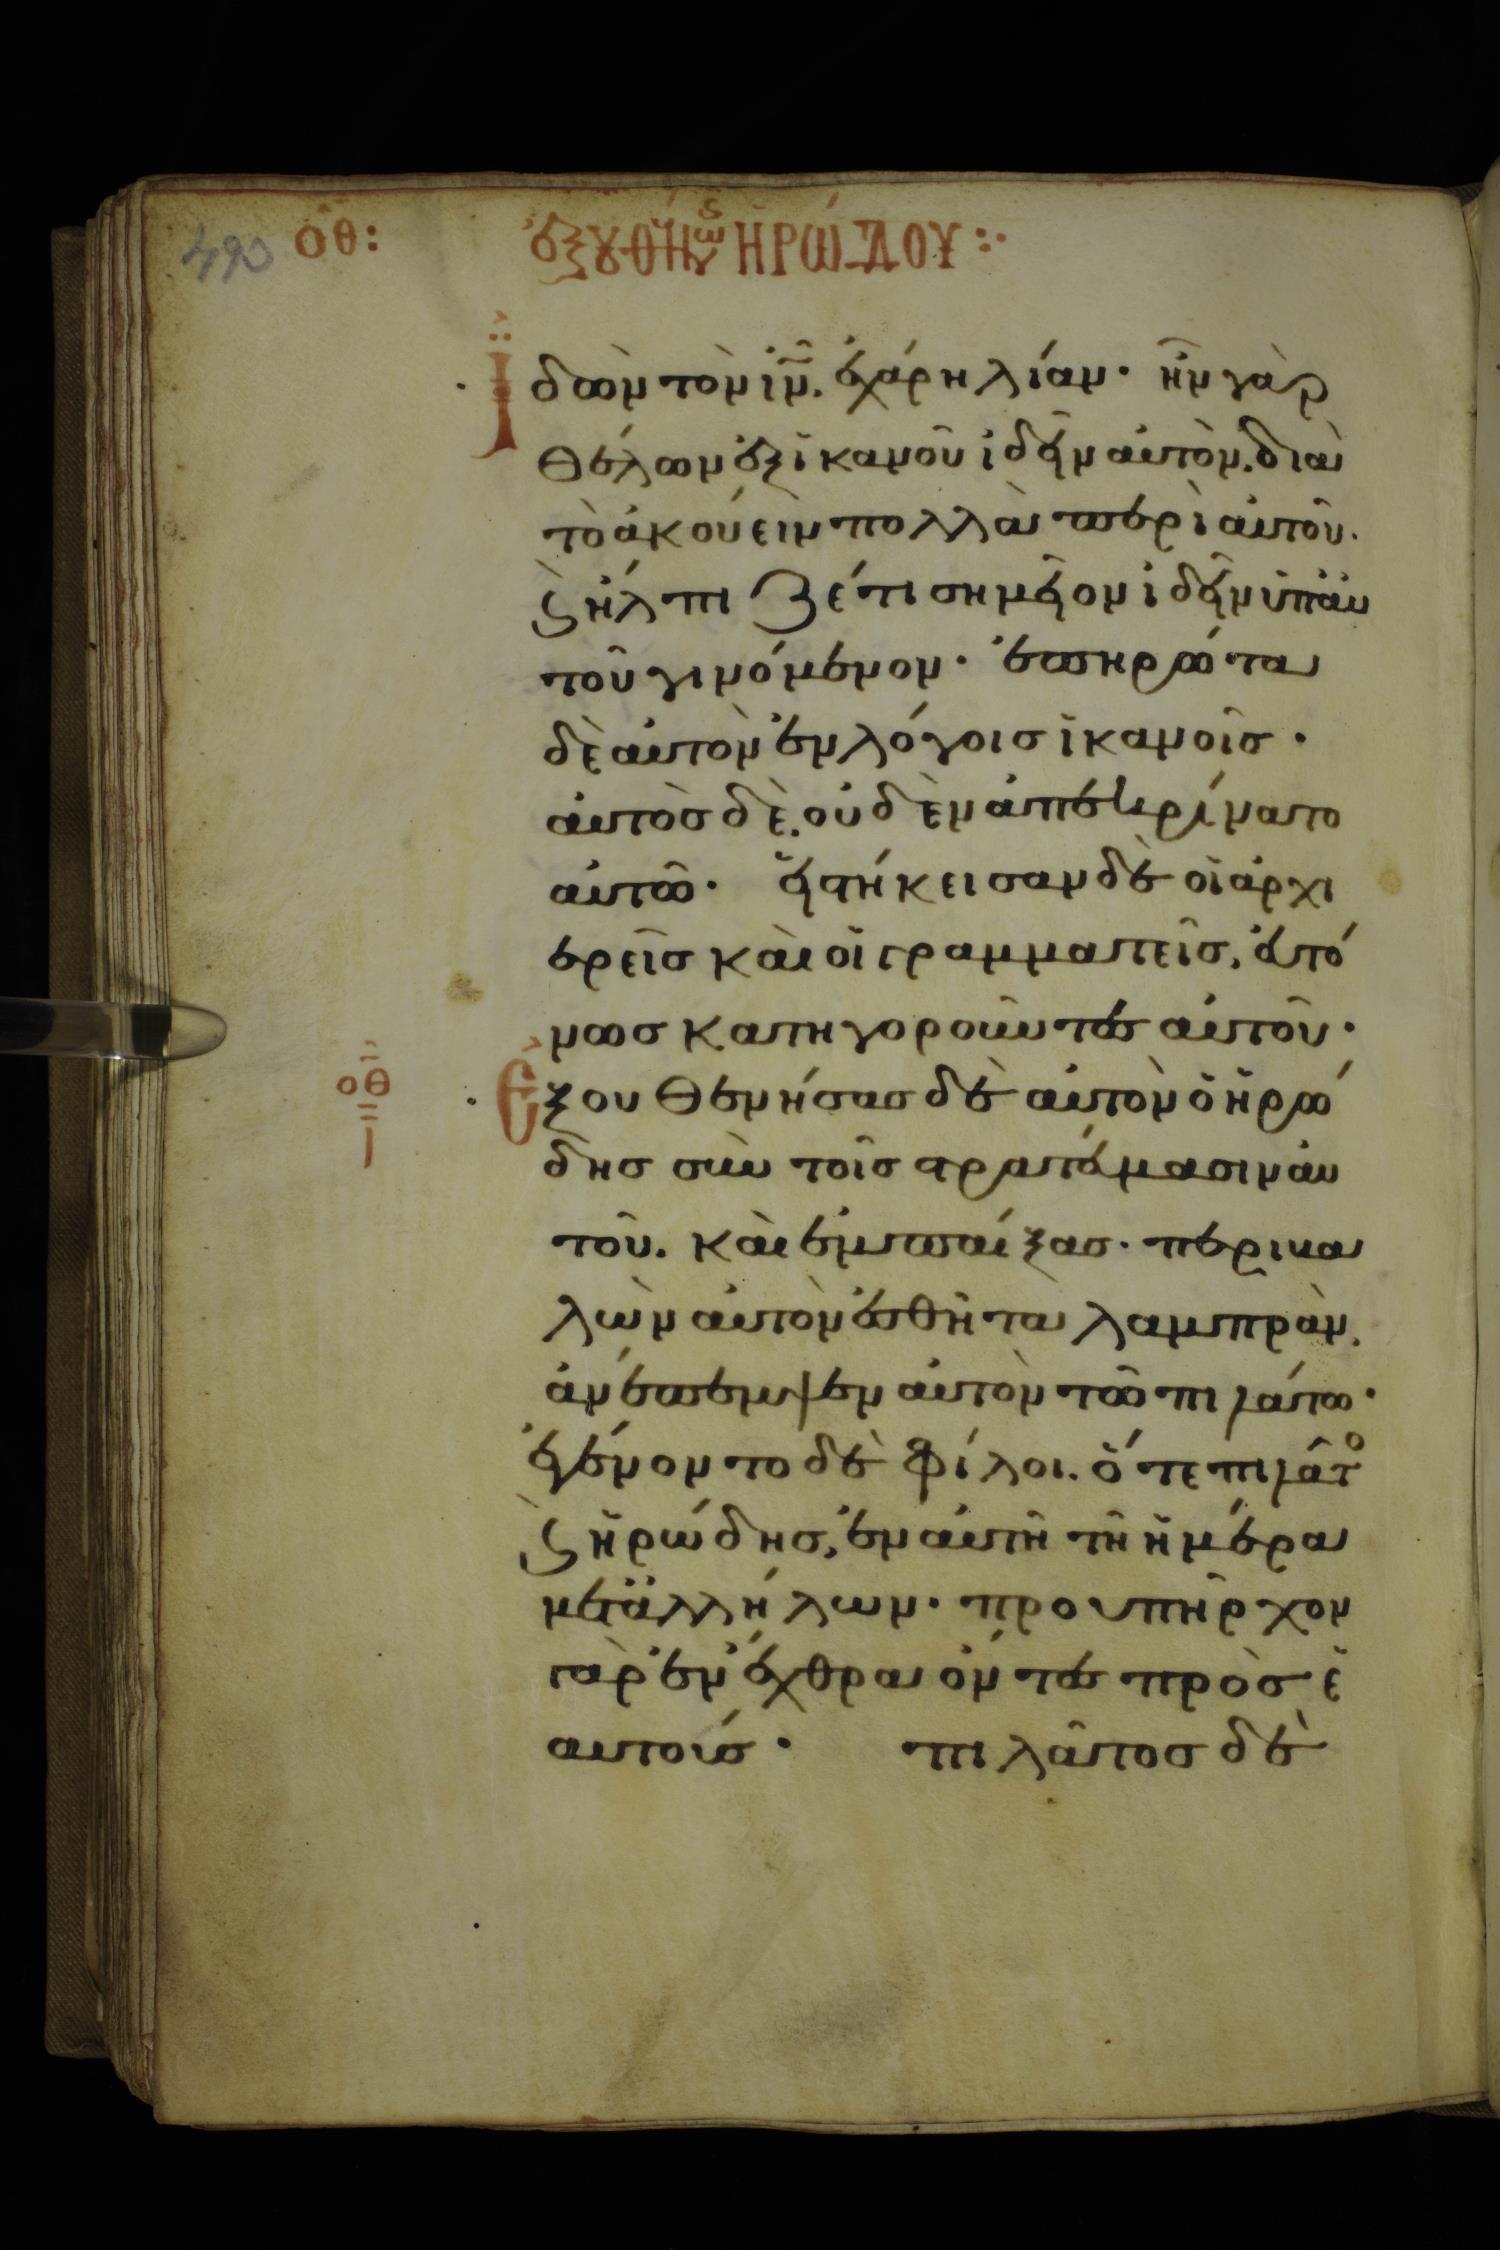 οθ: ἐξουθενήσεως ἡρώδου
ἰδὼν τὸν ιν. ἐχάρη λίαν· ἦν γὰρ
θέλων ἐξ ἱκανοῦ ἰδεῖν αὐτὸν. διὰ
τὸ ἀκούειν πολλὰ περὶ αὐτοῦ.
ϗ ἤλπιζέ τι σημεῖον ἰδεῖν ὑπ' αὐ
τοῦ γινόμενον· ἐπηρώτα
δὲ αὐτὸν ἐν λόγοισ ἱκανοῖσ·
αὐτὸσ δὲ. οὐδὲν ἀπεκρίνατο
αὐτῶ· εἱστήκεισαν δὲ οἱ ἀρχι
ερεῖσ καὶ οἱ γραμματεῖσ, εὐτό
νωσ κατηγοροῦντεσ αὐτοῦ·
οθ
ι
ἐξουθενήσασ δὲ αὐτὸν ὁ ἡρώ
δησ σὺν τοῖσ στρατεύμασιν αὐ
τοῦ. καὶ ἐμπαίξασ· περιβα
λὼν αὐτὸν ἐσθῆτα λαμπρὰν,
ἀνέπεμψεν αὐτὸν τῶ πιλάτω·
ἐγένοντο δὲ φίλοι. ὅ τε πιλᾶτο
ϗ ἡρώδησ, ἐν αὐτῆ τῆ ἡμέρα
μετ' ἀλλήλων· προυπῆρχον
γὰρ ἐν ἔχθρα ὄντεσ πρὸσ ἑ
αυτούσ· πιλᾶτοσ δὲ